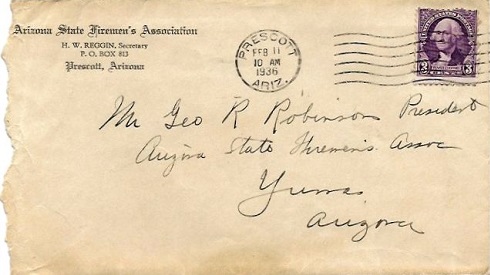 Arizona State Firemen's Association
H. W. REGGIN, Secretary
P. O. BOX 813
Prescott, Arizona
PRESCOTT
FEB 11
10 AM
1936
ARIZ.
3 3
Mr Geo R Robinson President
Arizona State Firemen's Assoc
Yuma
Arizona